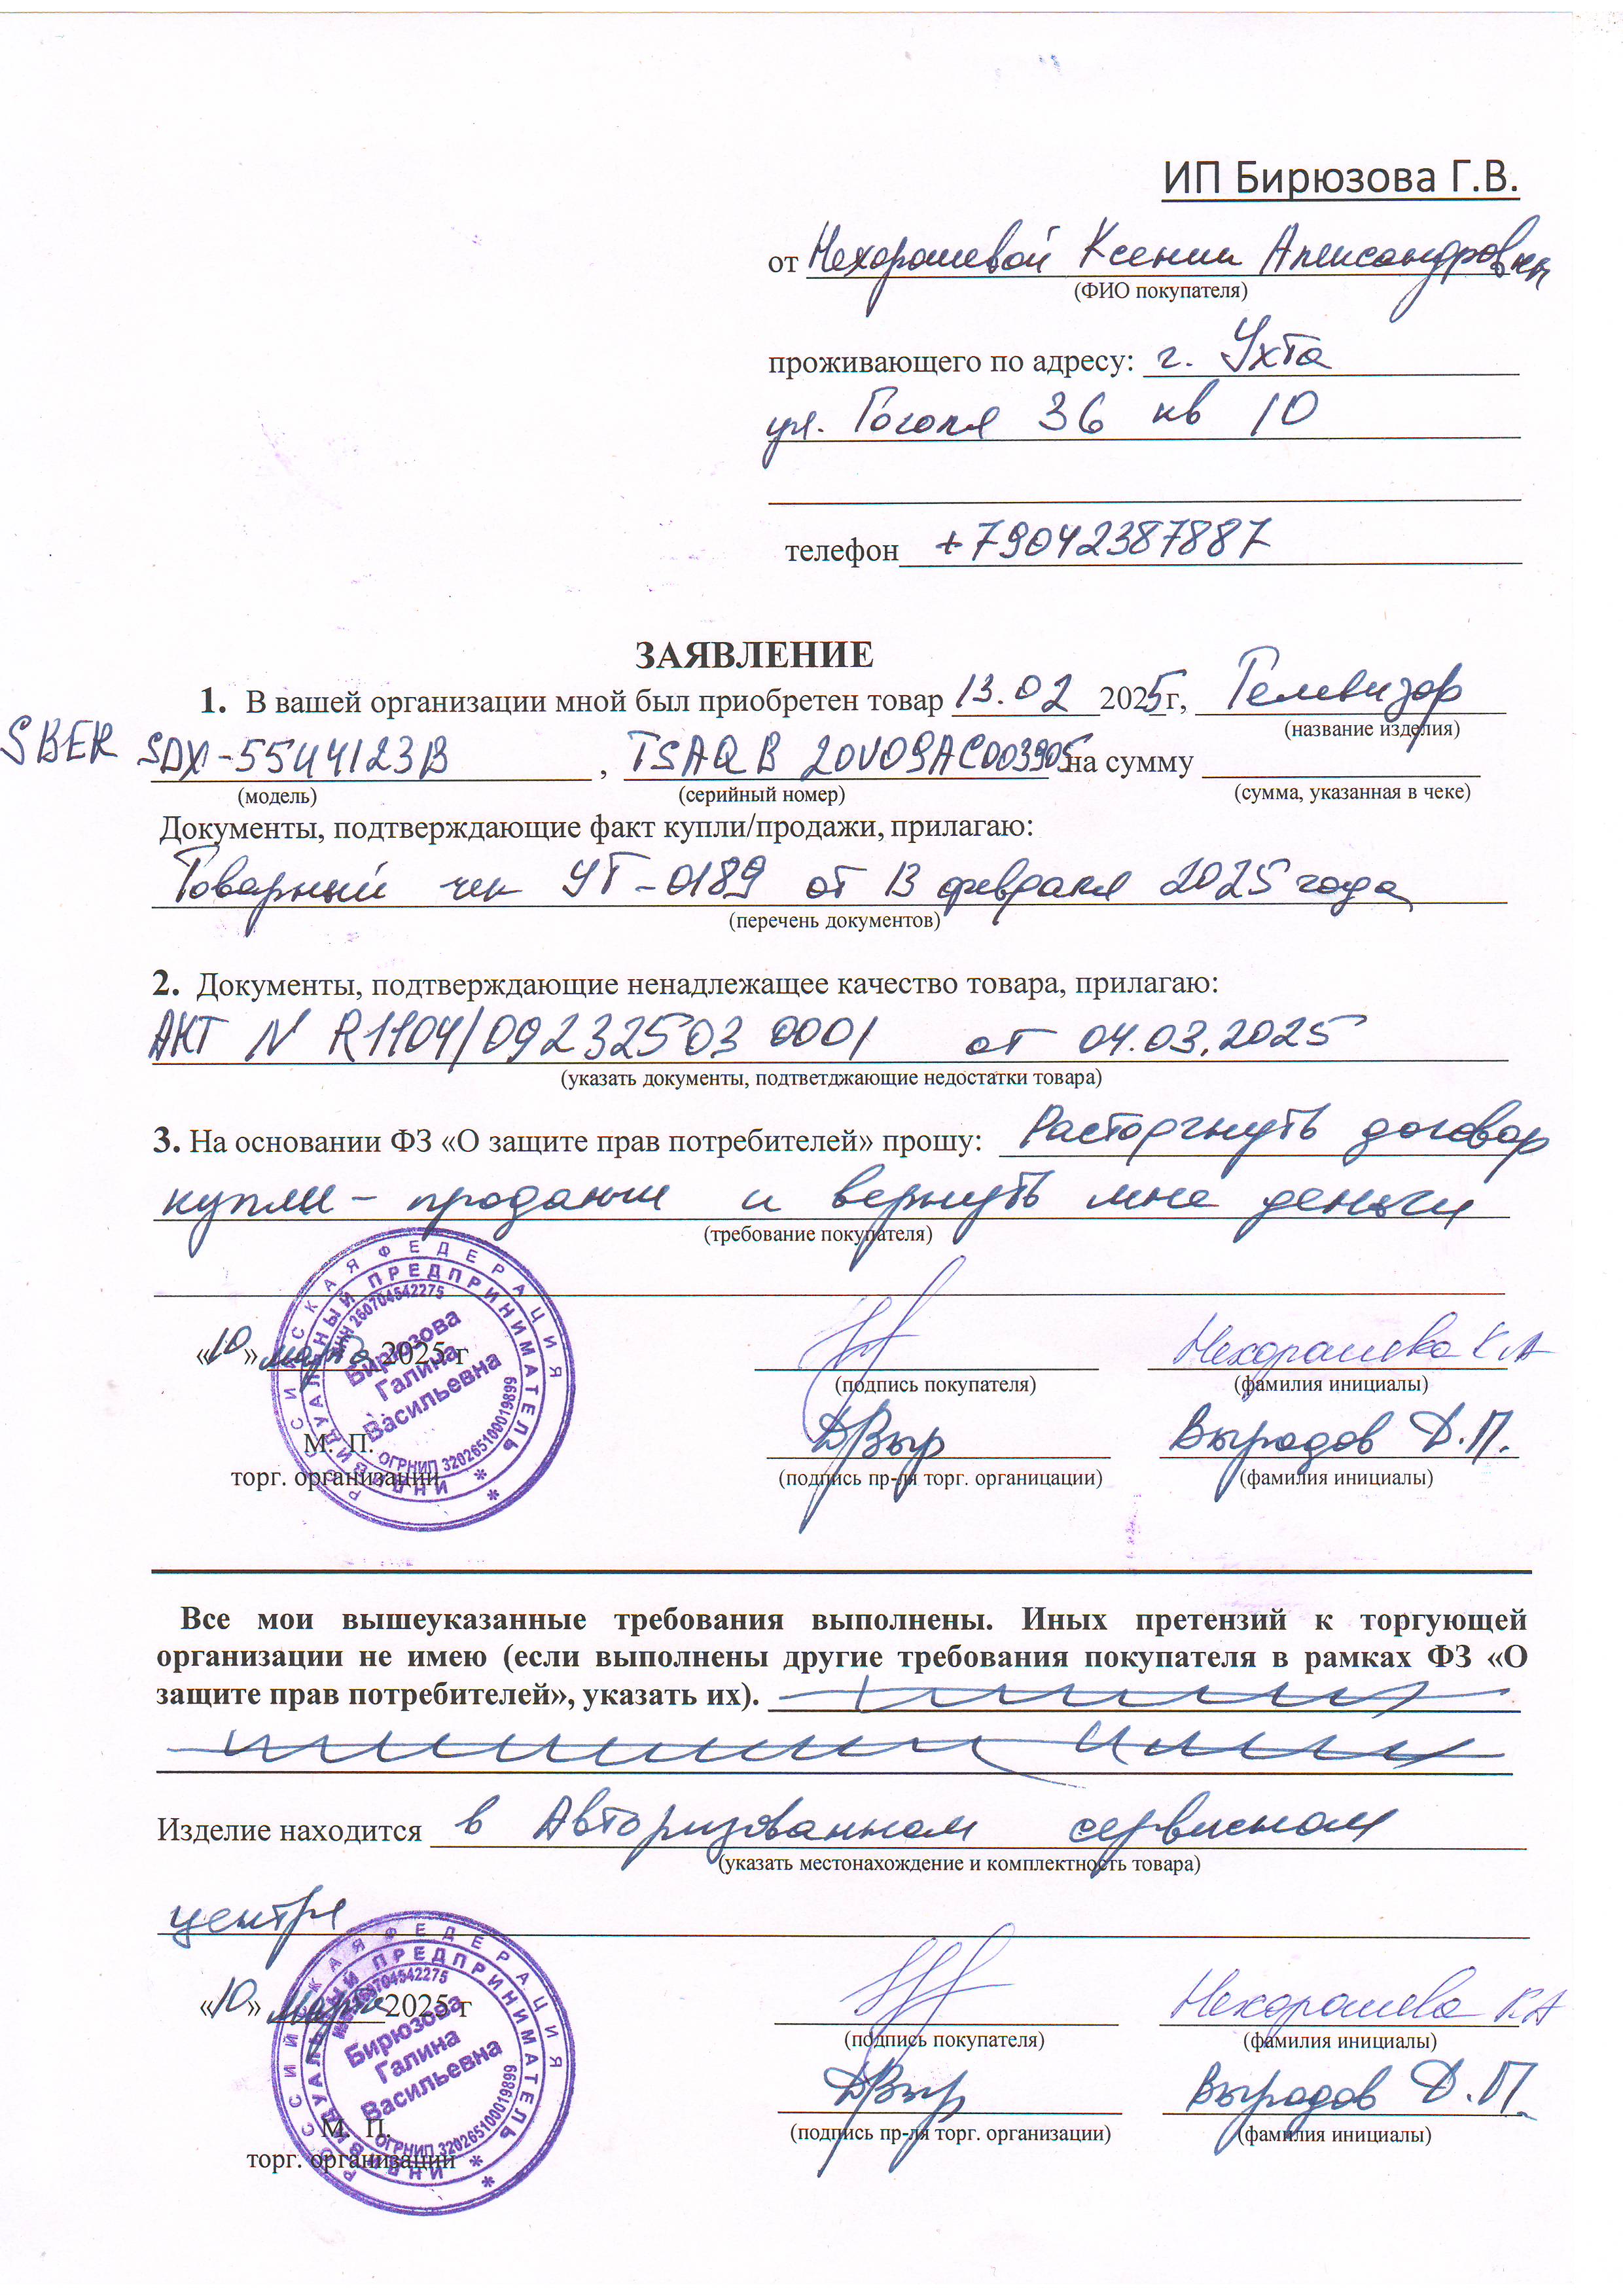 ИП Бирюзова Г.В.
от Нехорошевой Ксении Александровны
(ФИО покупателя)
проживающего по адресу: г. Ухта
ул. Гоголя 36 кв 10
телефон +79042387887
ЗАЯВЛЕНИЕ
1. В вашей организации мной был приобретен товар 13.02 2025г, Телевизор
(название изделия)
SBER SDX-55U4123B, TSAQB20V09AC003905 на сумму
(модель) (серийный номер) (сумма, указанная в чеке)
Документы, подтверждающие факт купли/продажи, прилагаю:
Товарный чек УТ-0189 от 13 февраля 2025 года
(перечень документов)
2. Документы, подтверждающие ненадлежащее качество товара, прилагаю:
АКТ N R1104/09232503 0001 от 04.03.2025
(указать документы, подтветджающие недостатки товара)
3. На основании ФЗ «О защите прав потребителей» прошу: Расторгнуть договор
купли-продажи и вернуть мне деньги
(требование покупателя)
«10» марта 2025 г Нехорошева К А
(подпись покупателя) (фамилия инициалы)
ДВыр Вырадов Д.П.
М. П.
торг. организации (подпись пр-ля торг. органицации) (фамилия инициалы)
РОССИЙСКАЯ ФЕДЕРАЦИЯ
ИНДИВИДУАЛЬНЫЙ ПРЕДПРИНИМАТЕЛЬ
ИНН 260704542275
Бирюзова
Галина
Васильевна
ОГРНИП 320265100019899
Все мои вышеуказанные требования выполнены. Иных претензий к торгующей
организации не имею (если выполнены другие требования покупателя в рамках ФЗ «О
защите прав потребителей», указать их).
Изделие находится в Авторизованном сервисном
(указать местонахождение и комплектность товара)
центре
«10» марта 2025 г Нехорошева К А
(подпись покупателя) (фамилия инициалы)
ДВыр Вырадов Д.П.
М. П. (подпись пр-ля торг. организации) (фамилия инициалы)
торг. организации
РОССИЙСКАЯ ФЕДЕРАЦИЯ
ИНДИВИДУАЛЬНЫЙ ПРЕДПРИНИМАТЕЛЬ
ИНН 260704542275
Бирюзова
Галина
Васильевна
ОГРНИП 320265100019899